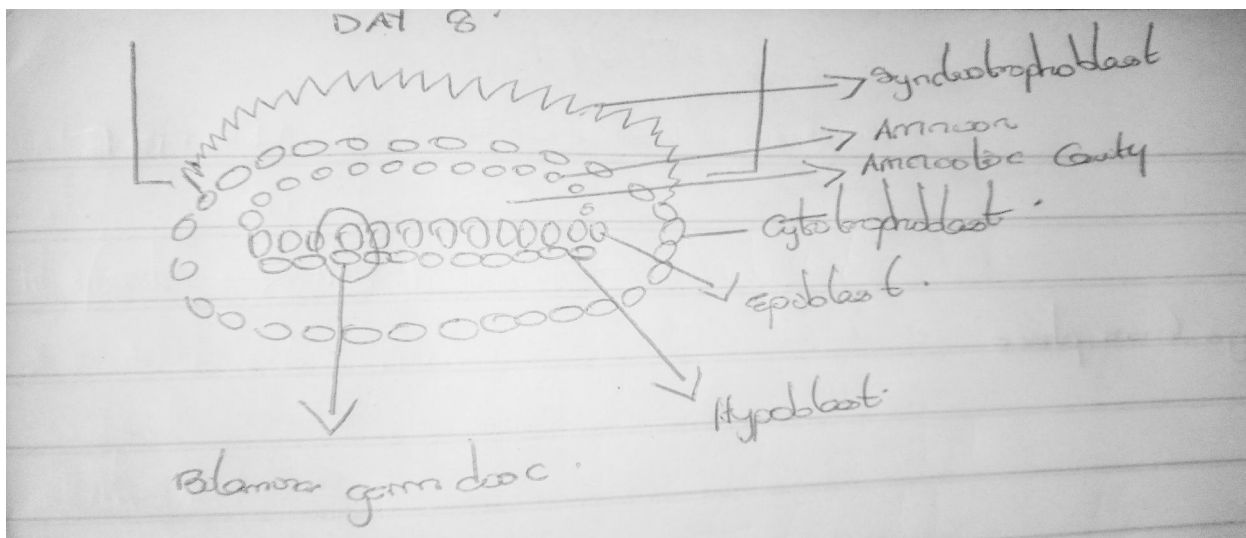 DAY 8.
Syncteotrophoblast
Amnion
Amniotic Cavity
Cytotrophoblast.
Epiblast.
Hypoblast.
Bilaminar germ disc.